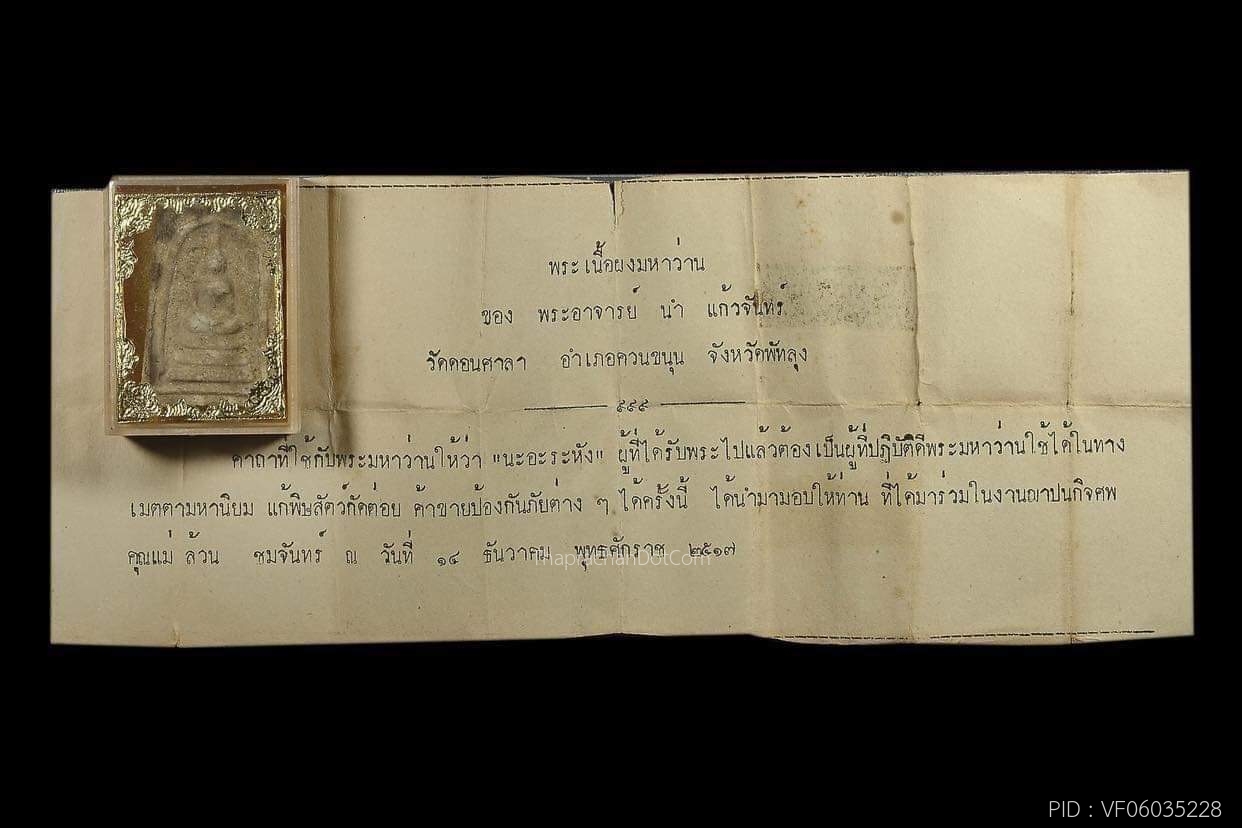 พระเนื้อผงมหาว่าน
ของ พระอาจารย์ นำ แก้วจันทร์
วัดดอนศาลา อำเภอควนขนุน จังหวัดพัทลุง
๙๙๙
คาถาที่ใช้กับพระมหาว่านให้ว่า "นะอะระหัง" ผู้ที่ได้รับพระไปแล้วต้องเป็นผู้ที่ปฏิบัติดีพระมหาว่านใช้ได้ในทาง
เมตตามหานิยม แก้พิษสัตว์กัดต่อย ค้าขายป้องกันภัยต่าง ๆ ได้ครั้งนี้ ได้นำมามอบให้ท่าน ที่ได้มาร่วมในงานฌาปนกิจศพ
คุณแม่ ล้วน ชมจันทร์ ณ วันที่ ๑๔ ธันวาคม พุทธศักราช ๒๕๑๗
ThaprachanDotCom
PID : VF06035228